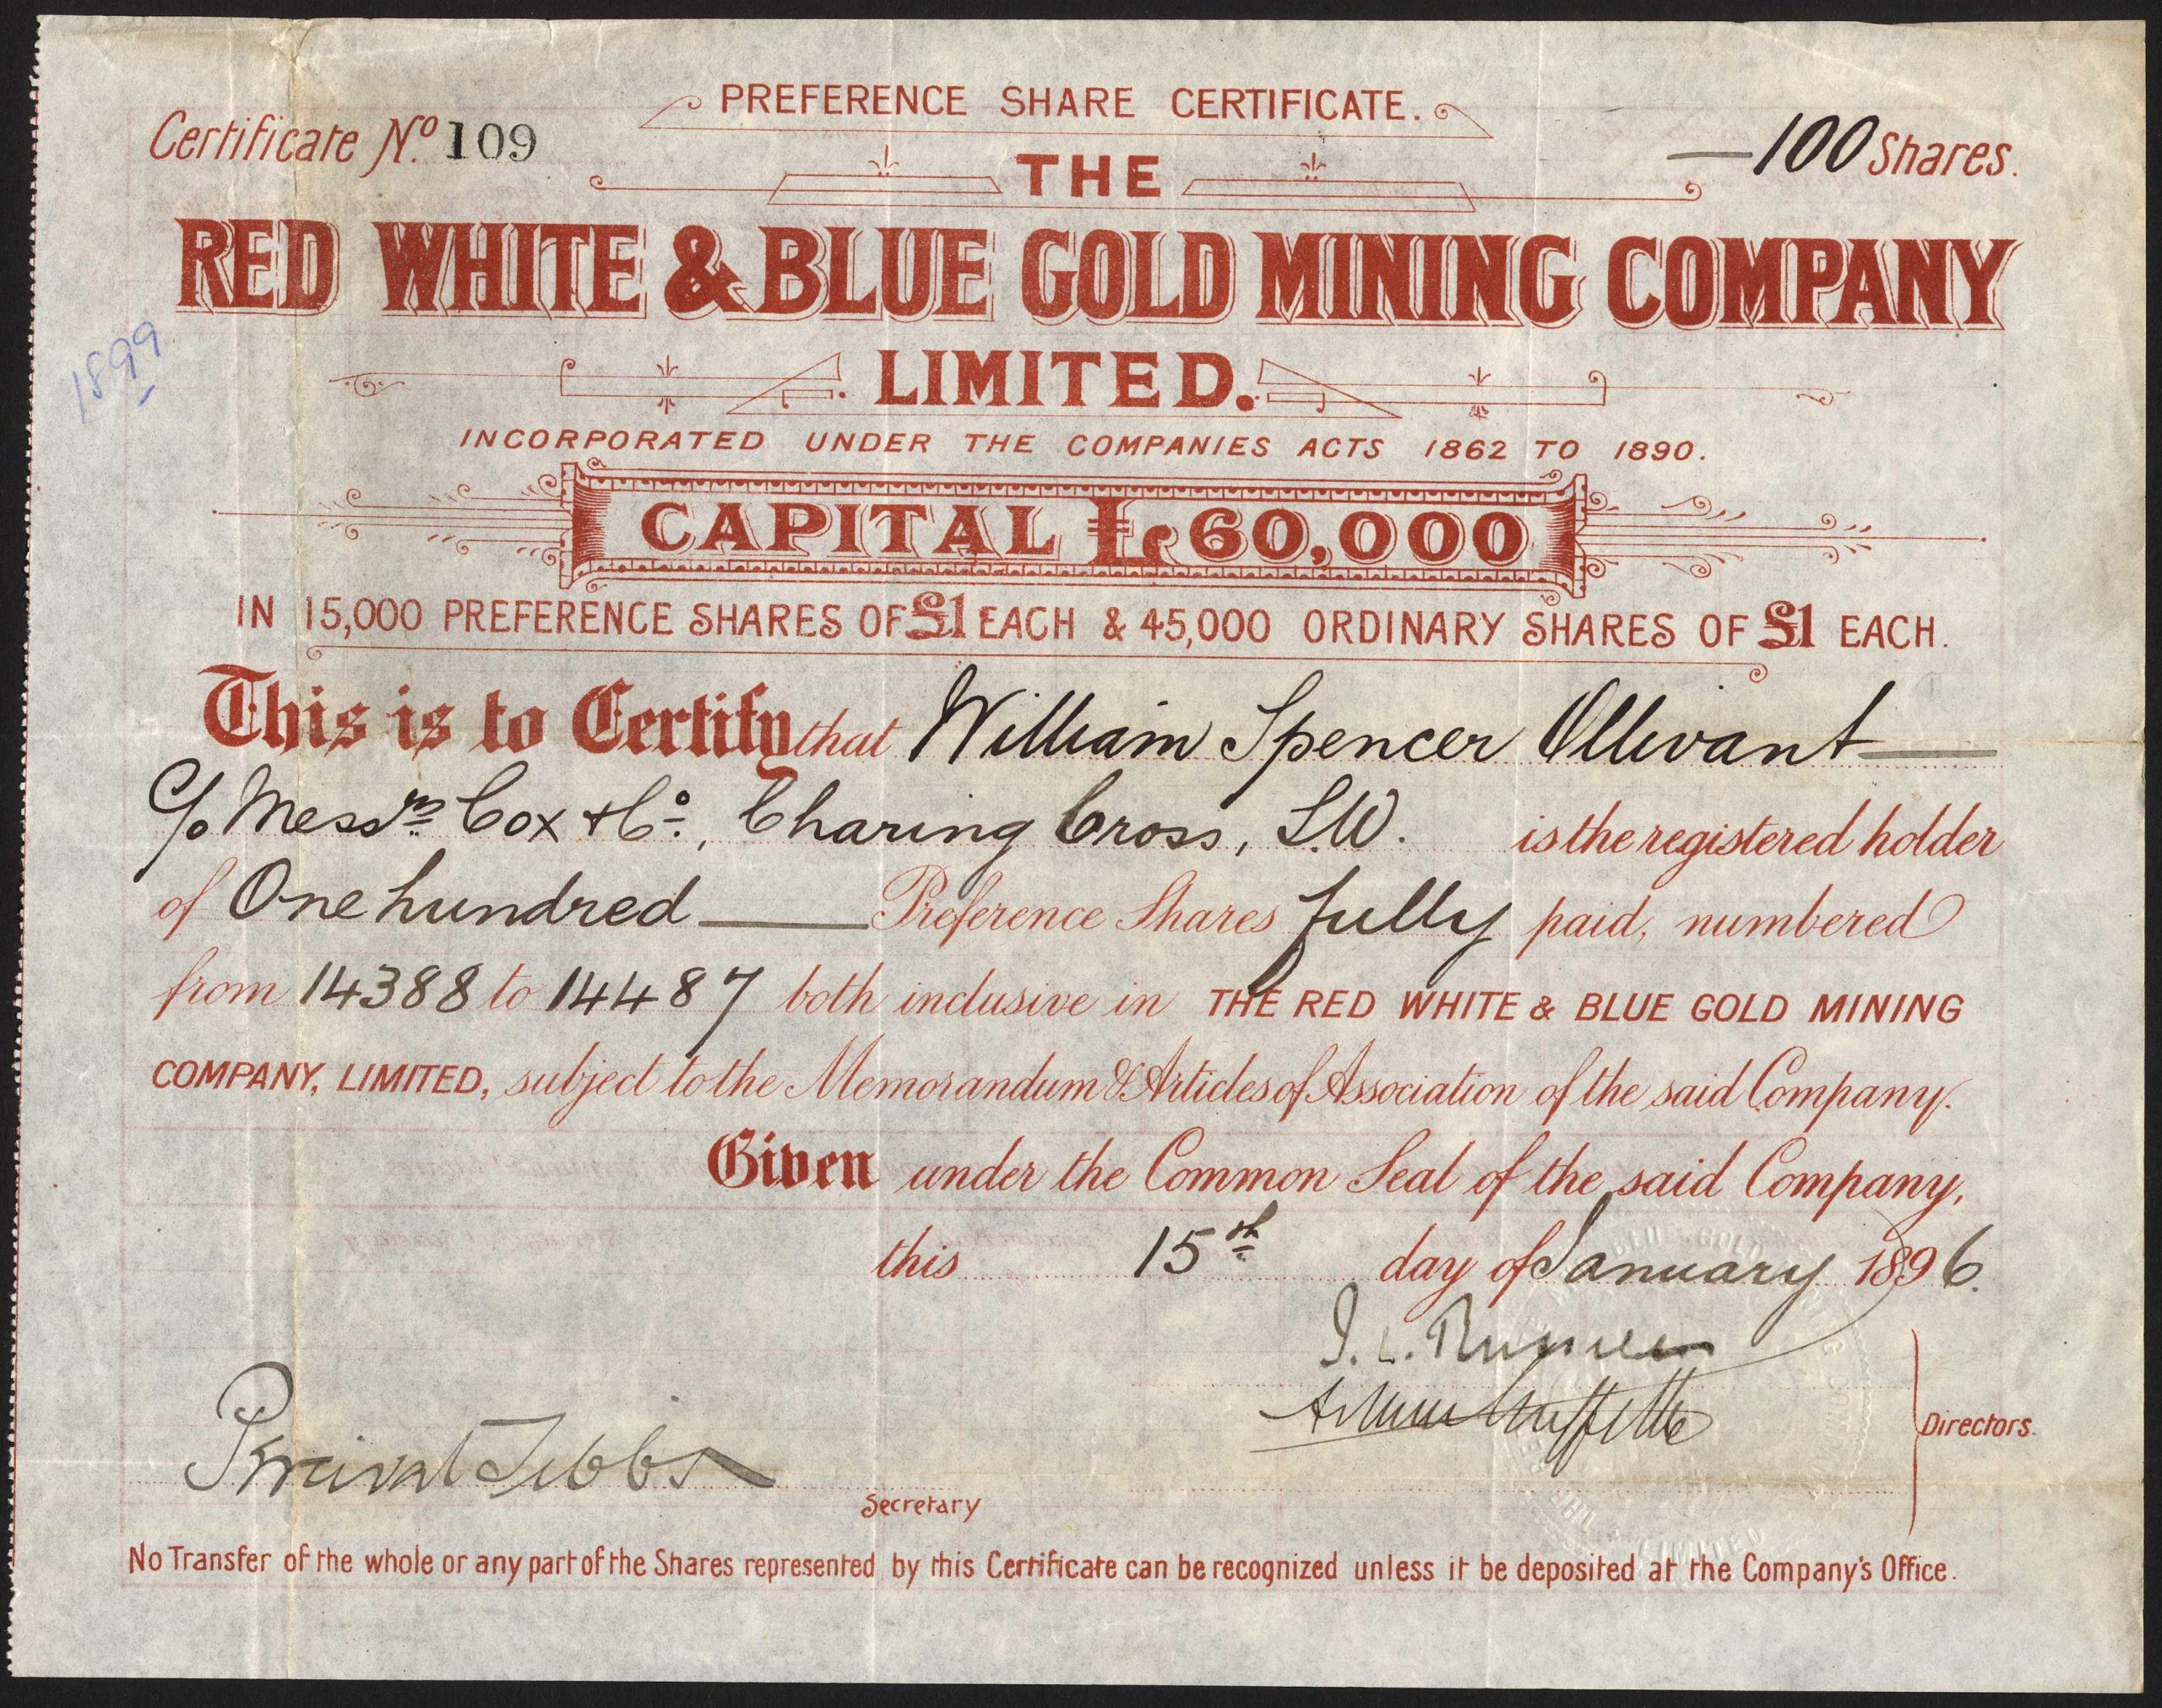 PREFERENCE SHARE CERTIFICATE.
Certificate No. 109
— 100 Shares.
THE
RED WHITE & BLUE GOLD MINING COMPANY
LIMITED.
1899
INCORPORATED UNDER THE COMPANIES ACTS 1862 TO 1890.
CAPITAL £60,000
IN 15,000 PREFERENCE SHARES OF £1 EACH & 45,000 ORDINARY SHARES OF £1 EACH.
This is to Certify that William Spencer Ollivant
c/o Messrs Cox & Co., Charing Cross, S.W. is the registered holder
of One hundred — Preference Shares fully paid, numbered
from 14388 to 14487 both inclusive in THE RED WHITE & BLUE GOLD MINING
COMPANY, LIMITED, subject to the Memorandum & Articles of Association of the said Company.
Given under the Common Seal of the said Company,
this 15th day of January 1896.
Percival Tebbs
Secretary
Directors.
No Transfer of the whole or any part of the Shares represented by this Certificate can be recognized unless it be deposited at the Company's Office.